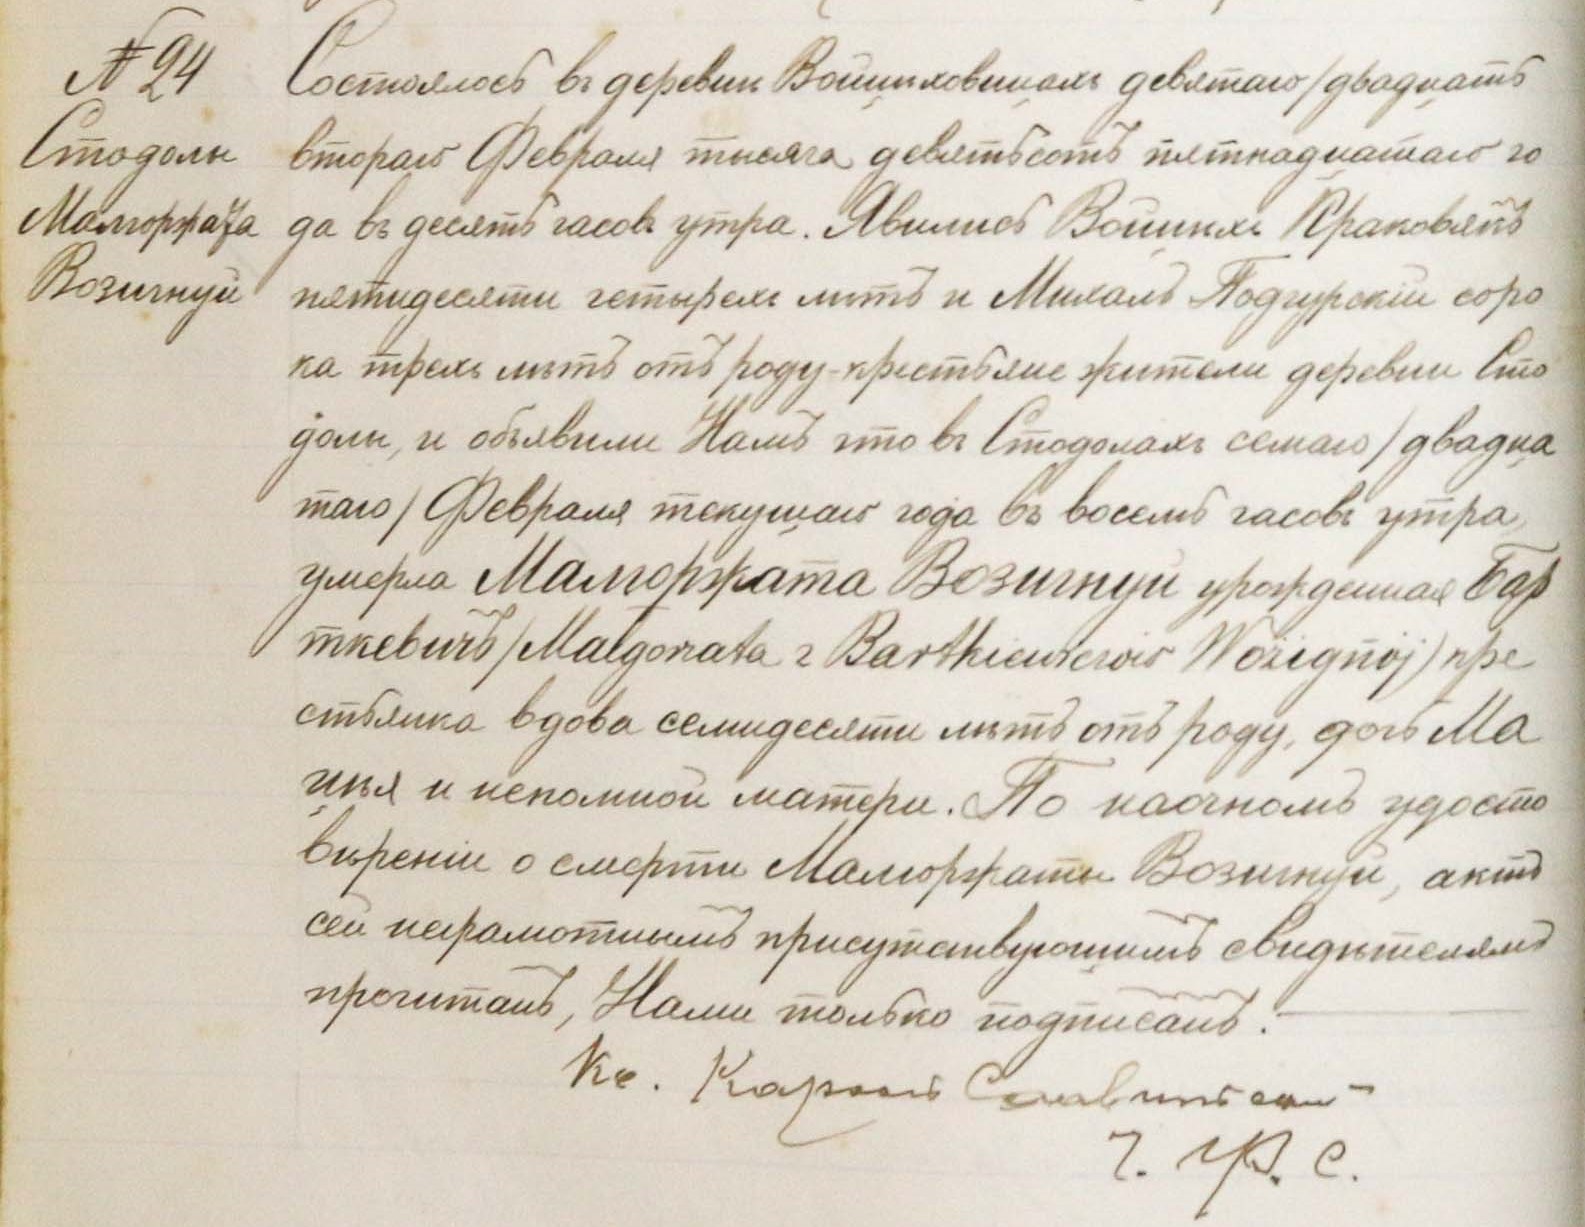 № 24
Стодолы
Малгоржата
Возигнуй
Состоялось въ деревни Войцѣховицахъ девятаго/двадцать
втораго Февраля тысяча девятьсотъ пятнадцатаго го
да въ десять часовъ утра. Явились Войцѣхъ Краковякъ
пятидесяти четырехъ лѣтъ и Михалъ Подгурскій соро
ка трехъ лѣтъ отъ роду-крестьяне жители деревни Сто
долы, и объявили Намъ что въ Стодолахъ семаго/двадца
таго/Февраля текущаго года въ восемь часовъ утра
умерла Малгоржата Возигнуй урожденная Бар
ткевичъ/Małgorzata z Barthiewiczów Wozignój) кре
стьянка вдова семидесяти лѣтъ отъ роду, дочь Ма
цѣя и непомной матери. По наочномъ удосто
вѣреніи о смерти Малгоржаты Возигнуй, актъ
сей неграмотнымъ присутствующимъ свидѣтелямъ
прочитанъ, Нами только подписанъ.
Кс. Кароль
Г. С.